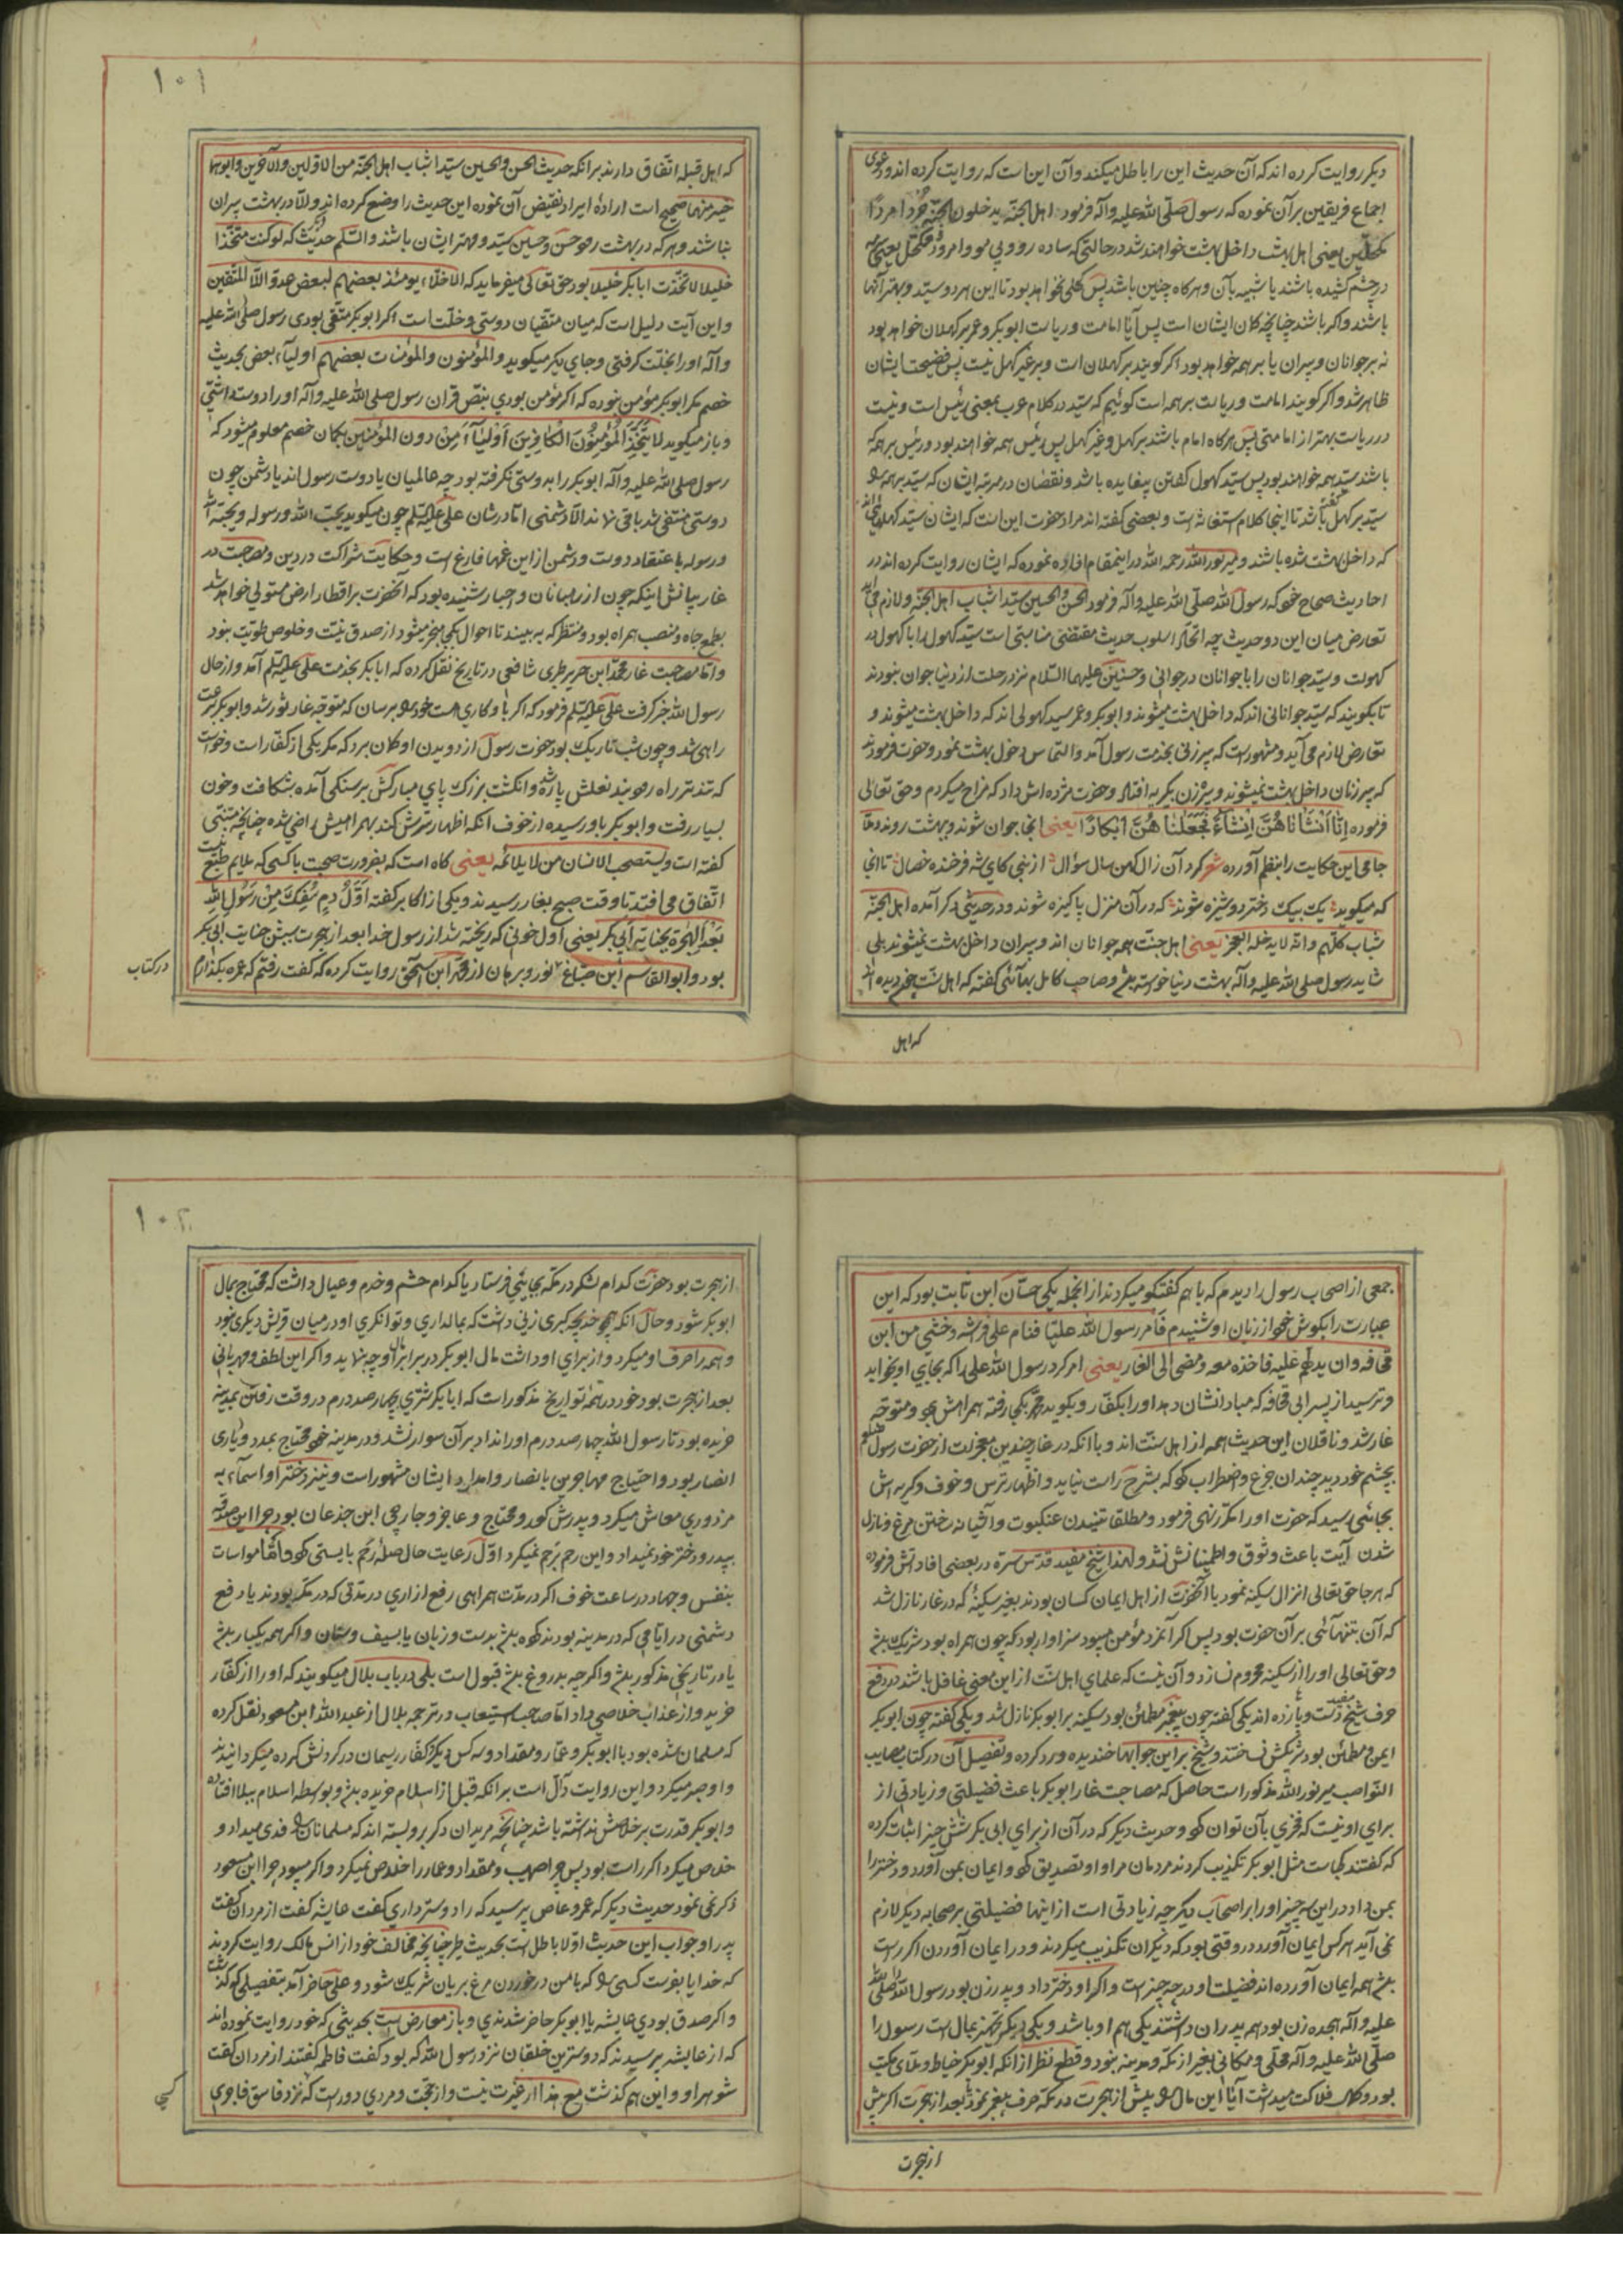 دیکر روایت کرده اند که آن حدیث این را باطل میکند و آن این است که روایت کرده اند و دعوی
اجماع فریقین بر آن نموده که رسول صلّی الله علیه وآله فرمود اهل الجنّة یدخلون الجنّة جُردا مردًا
مکحّلین یعنی اهل بهشت داخل بهشت خواهند شد در حالتی که ساده رو و بی مو و امرود و مکحّل یعنی سرمه
در چشم کشیده باشند یا شبیه بآن و هرکاه چنین باشد پس کهلی نخواهد بود تا این هر دو سیّد و بهتر آنها
باشند و اکر باشند چنانچه کمان ایشان است پس آیا امامت و ریاست ابوبکر و عمر بر کهلان خواهد بود
نه بر جوانان و پیران یا بر همه خواهد بود اکر کویند بر کهلان است و بر غیر کهل نیست پس فضیحت ایشان
ظاهر شد و اکر کویند امامت و ریاست بر همه است کوئیم که سیّد در کلام عرب بمعنی رئیس است و نیست
در ریاست بهتر از امامتی پس هرکاه امام باشند بر کهل و غیر کهل پس رئیس همه خواهند بود و رئیس بر همه که
باشند سیّد همه خواهند بود پس سیّد کهول کفتن بیفایده باشد و نقصان در مرتبه ایشان که سیّد بر همه را
سیّد بر کهل کفته باشد تا اینجا کلام استغاثه است و بعضی کفته اند مراد حضرت این است که ایشان سیّد کهلانی اند
که داخل بهشت شده باشند و میر نورالله رحمه الله در اینمقام افاده نموده که ایشان روایت کرده اند در
احادیث صحاح خود که رسول الله صلّی الله علیه وآله فرمود الحسن والحسین سیّدا شباب اهل الجنّة و لازم می آید
تعارض میان این دو حدیث چه اتحاد اسلوب حدیث مقتضی مناسبتی است سیّد کهول را با کهول در
کهولت و سیّد جوانان را با جوانان در جوانی و حسنین علیهما السّلام نزد رحلت از دنیا جوان نبودند
تا بکویند که سیّد جوانانی اند که داخل بهشت میشوند و ابوبکر و عمر سید کهولی اند که داخل بهشت میشوند و
تعارض لازم می آید و مشهور است که پیر زنی بخدمت رسول آمد و التماس دخول بهشت نمود و حضرت فرمودند
که پیر زنان داخل بهشت نمیشوند و پیرزن بکریه افتاد و حضرت مژده اش داد که مزاح میکردم و حق تعالی
فرموده اِنّا اَنْشَأناهُنَّ اِنْشاءً فَجَعَلْناهُنَّ اَبْکارًا یعنی انجا جوان شوند و بهشت روند و ملّا
جامی این حکایت را بنظم آورده شعر کرد آن زال کهن سال سؤال از نبی کای شه فرخنده خصال تا انجا
که میکوید یک بیک دختر دوشیزه شوند که در آن منزل پاکیزه شوند و در حدیثی دکر آمده اهل الجنّة
شباب کلّهم و انّه لا یدخله العجز یعنی اهل جنّت همه جوانان اند و پیران داخل بهشت نمیشوند بلی
شاید رسول صلی الله علیه وآله بهشت دنیا خواسته باشد و صاحب کامل بهائی کفته که اهل سنّت چون دیده اند
که اهل
۱۰۱
که اهل قبله اتّفاق دارند بر انکه حدیث الحسن والحسین سیّدا شباب اهل الجنّة من الاوّلین والاخرین وابوهما
خیر منهما صحیح است اراده ایراد نقیض آن نموده این حدیث را وضع کرده اند والّا در بهشت پیران
نباشند و هر که در بهشت رود حسن و حسین سیّد و مهتر ایشان باشند والسّلم حدیث دیگر که لو کنت متّخذا
خلیلا لاتّخذت ابابکر خلیلا بود حق تعالی میفرماید که الاخلّاء یومئذ بعضهم لبعض عدوّ الّا المتّقین
و این آیت دلیل است که میان متّقیان دوستی و خلّت است اکر ابوبکر متّقی بودی رسول صلّی الله علیه
وآله او را بخلّت کرفتی و جای دیگر میکوید والمؤمنون والمؤمنات بعضهم اولیاء بعض بحدیث
خصم مکر ابوبکر مؤمن نبوده که اکر مؤمن بودی بنصّ قران رسول صلی الله علیه وآله او را دوست داشتی
و باز میکوید لا یَتَّخِذِ الْمُؤْمِنُونَ الْکافِرینَ اَوْلیاءَ مِنْ دون المؤمنین بکمان خصم معلوم میشود که
رسول صلی الله علیه وآله ابوبکر را بدوستی نکرفته بود چه عالمیان یا دوست رسول اند یا دشمن چون
دوستی منتفی شد باقی نماند الّا دشمنی امّا در شان علی علیه السّلم چون میکوید یحبّ الله و رسوله و یحبّه الله
و رسوله باعتقاد دوست و دشمن از این غمها فارغ است و حکایت شراکت در دین و مصاحبت در
غار بیانش اینکه چون از رهبانان و احبار شنیده بود که انحضرت بر اقطار ارض مستولی خواهد شد
بطمع جاه و منصب همراه بود و منتظر که به بیند تا احوال بکجا منجر میشود از صدق نیّت و خلوص طویّت نبود
و امّا مصاحبت غار محمّد ابن جریر طبری شافعی در تاریخ نقل کرده که ابابکر بخدمت علی علیه السّلم آمد و از حال
رسول الله خبر کرفت علی علیه السّلم فرمود که اکر با او کاری هست خود را برسان که متوجّه غار ثور شد و ابوبکر بسرعت
راهی شد و چون شب تاریک بود حضرت رسول از دویدن او کمان برد که مکر یکی از کفّار است و خواست
که تند تر راه رود بند نعلش پاره شد و انکشت بزرک پای مبارکش بر سنکی آمده بشکافت و خون
بسیار رفت و ابوبکر باو رسیده از خوف آنکه اظهار سرّش کند بهمراهیش راضی شده چنانچه متنبّی
کفته است و یستصحب الانسان من لا یلائمه یعنی کاه است که بضرورت صحبت با کسی که ملایم طبع نیست
اتّفاق می افتد تا وقت صبح بغار رسیدند و یکی از اکابر کفته اَوَّلُ دمٍ سُفِکَ مِنْ رَسُولِ اللهِ
بَعْدَ الهجْرةِ بجنایةِ اَبی بکر یعنی اول خونی که ریخته شد از رسول خدا بعد از هجرت بسبب جنایت ابی بکر
بود و ابوالقاسم ابن صباغ در نور و برهان از محمّد ابن اسحق روایت کرده که کفت رفتم که عمره بکذارم
در کتاب
جمعی از اصحاب رسول را دیدم که با هم کفتکو میکردند از انجمله یکی حسّان ابن ثابت بود که این
عبارت را بکوش خود از زبان او شنیدم فامر رسول الله علیّا فنام علی فرشه و خشی من ابن
قحافه وان یدلّهم علیه فاخذه معه و مضی الی الغار یعنی امر کرد رسول الله علی را که بجای او بخوابد
و ترسید از پسر ابی قحافه که مبادا نشان دهد او را بکفّار و بکوید محمّد بکجا رفته همراهش برد و متوجّه
غار شد و ناقلان این حدیث همه از اهل سنّت اند و با انکه در غار چندین معجزات از حضرت رسول
بچشم خود دید چندان جزع و اضطراب کرد که بشرح راست نیاید و اظهار ترس و خوف و کریه اش
بجائی رسید که حضرت او را مکرّر نهی فرمود و مطلقا تنیدن عنکبوت و آشیانه ساختن مرغ و نازل
شدن آیت باعث وثوق و اطمینانش نشد و لهذا شیخ مفید قدّس سرّه در بعضی افاداتش فرموده
که هرجا حق تعالی انزال سکینه نمود با انحضرت از اهل ایمان کسان بودند بغیر سکینه که در غار نازل شد
که آن بتنهائی بر آن حضرت بود پس اکر آنمرد مؤمن میبود سزاوار بود که چون همراه بود شریک باشد
و حق تعالی او را از سکینه محروم نسازد و آن نیست که علمای اهل سنّت از این معنی غافل باشند در دفع
حرف شیخ مفید دست و پا زده اند یکی کفته چون پیغمبر مطمئن بود سکینه بر ابوبکر نازل شد و یکی کفته چون ابوبکر
ایمن و مطمئن بود شریکش نساختند و شیخ بر این جوابها خندیده و رد کرده و تفصیل آن در کتاب مصایب
النّواصب میر نورالله مذکور است حاصل که مصاحبت غار ابوبکر باعث فضیلتی و زیادتی از
برای او نیست که فخری بآن توان کرد و حدیث دیکر که در آن از برای ابی بکر شش چیز اثبات کرده
که کفتند کجاست مثل ابوبکر تکذیب کردند مردمان مرا و او تصدیق کرد و ایمان بمن آورد و دختر را
بمن داد در این سه چیز او را بر اصحاب دیکر چه زیادتی است از اینها فضیلتی بر صحابه دیکر لازم
نمی آید هر کس ایمان آورد در وقتی بود که دیکران تکذیب میکردند و در ایمان آوردن اکر راست
باشد همه ایمان آورده اند فضیلت او در چه چیز است و اکر او دختر داد و پدر زن بود رسول الله را صلّی الله
علیه وآله هجده زن بود همه پدران داشتند یکی هم او باشد و یکی دیکر تجهیز بمال است رسول را
صلّی الله علیه وآله محلّی و مکانی بغیر از مکّه و مدینه نبود و قطع نظر از انکه ابوبکر خیاط و ملّای مکتب
بود و کمال فلاکت میداشت آیا این مال را پیش از هجرت در مکّه صرف پیغمبر نمود یا بعد از هجرت اکر پیش
از هجرت
۱۰۲
از هجرت بود حضرت کدام لشکر در مکّه بجائی فرستاد یا کدام حشم و خدم و عیال داشت که محتاج بمال
ابوبکر شود و حال آنکه همچو خدیجه کبری زنی داشت که بمالداری و توانکری او در میان قریش دیکری نبود
و همه را صرف او میکرد و از برای او داشت مال ابوبکر در برابر مال او چه نماید و اکر این لطف و مهربانی
بعد از هجرت بود خود در همه تواریخ مذکور است که ابابکر شتری بچهارصد درم در وقت رفتن بمدینه
خریده بود تا رسول الله چهار صد درم او را نداد بر آن سوار نشد و در مدینه خود محتاج بمدد و یاری
انصار بود و احتیاج مهاجرین بانصار و امداد ایشان مشهور است و نیز دختر او اسماء به
مزدوری معاش میکرد و پدرش کور و محتاج و عاجز و جارچی ابن جذعان بود چرا این صدقه
بپدر و دختر خود نمیداد و این رحم بر رحم نمیکرد اوّل رعایت حال صلهٔ رحم بایستی کرد و امّا مواسات
بنفس و جهاد در ساعت خوف اکر در مدّت همراهی رفع ازاری در مدّتی که در مکّه بودند یا دفع
دشمنی در ایّامی که در مدینه بودند کرده باشد بدست و زبان یا بسیف و سنان و اکر همه یکبار باشد
یا در تاریخی مذکور باشد و اکر چه بدروغ باشد قبول است بلی در باب بلال میکویند که او را از کفّار
خرید و از عذاب خلاصی داد امّا صاحب استیعاب در ترجمه بلال از عبدالله ابن مسعود نقل کرده
که مسلمان شده بود با ابوبکر و عمّار و مقداد و سه کس دیکر کفّار ریسمان در کردنش کرده میکردانیدند
و او صبر میکرد و این روایت دالّ است بر انکه قبل از اسلام خریده باشد و بواسطه اسلام ببلا افتاده
و ابوبکر قدرت بر خلاصش نداشته باشد چنانچه مریدان دکر بر او بسته اند که مسلمانان را فدی میداد و
خلاص میکرد اکر راست بود پس چرا صهیب و مقداد و عمّار را خلاص نمیکرد و اکر میبود چرا ابن مسعود
ذکر نمی نمود حدیث دیکر که عمرو عاص پرسید که را دوستر داری کفت عایشه کفت از مردان کفت
پدر او جواب این حدیث اوّلا باطل است بحدیث طیر چنانچه مخالف خود از انس مالک روایت کردند
که خدایا بفرست کسی را که با من در خوردن مرغ بریان شریک شود و علی حاضر آمد بتفصیلی که کذشت
و اکر صدق بودی عایشه یا ابوبکر حاضر شدندی و باز معارض است بحدیثی که خود روایت نموده اند
که از عایشه پرسیدند که دوسترین خلقان نزد رسول الله که بود کفت فاطمه کفتند از مردان کفت
شوهر او و این هم کذشت مع هذا از غیرت نیست و از محبّت و مردی دور است که نزد فاسق فاجری
کسی